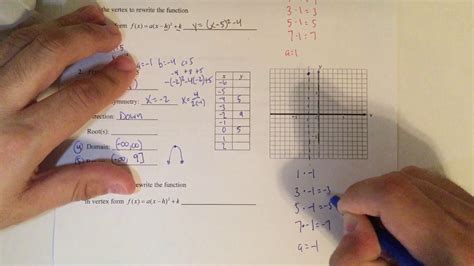 the vertex to rewrite the function
form f(x) = a(x-h)²+k y = (x-5)²-4
3·1=3
5·1=5
7·1=7
a=1
a=-1 b=-4 c=5
symmetry: x=-2
Direction: Down
Root(s):
Domain: (-∞,∞)
(-∞, 9]
x y
-6
-5
-4 5
-3
-2 9
-1
0 5
1
2
rewrite the function
in vertex form f(x) = a(x-h)²+k
1·-1
3·-1=-3
5·-1=-5
7·-1=-7
a=-1